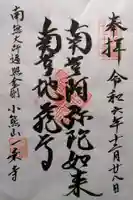 奉拝 令和六年十二月廿八日
南無阿弥陀如来
南無地蔵尊
南無大師遍照金剛 小熊山 一乗寺